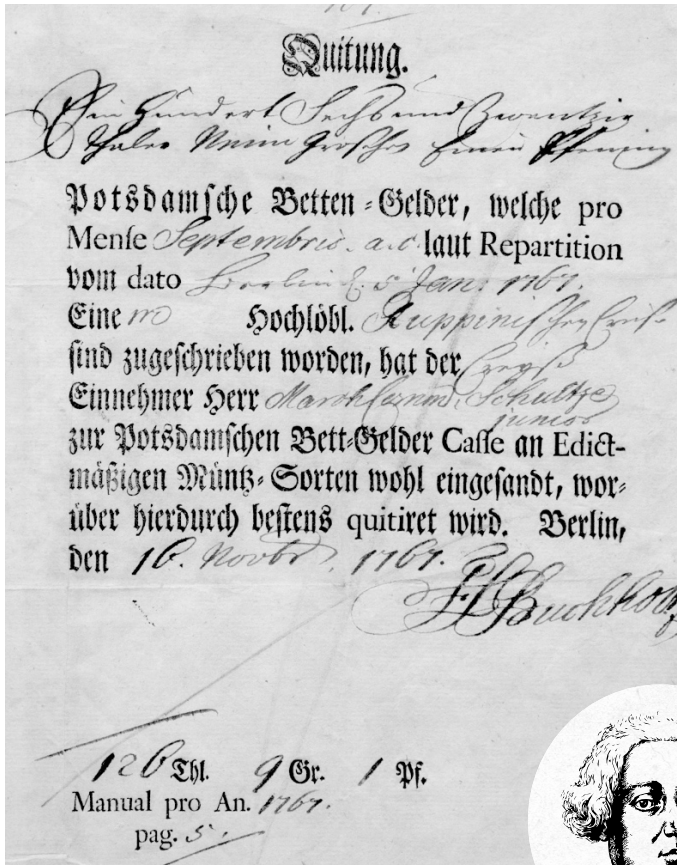 Quitung.
Ein Hundert Sechs und Zwantzig
Thaler Neun Groschen Einen Pfenning
Potsdamsche Betten-Gelder, welche pro
Mense Septembris. a.c. laut Repartition
vom dato Berlin d. 5 Jan. 1767.
Eine m Hochlöbl. Ruppinischen Creiß
sind zugeschrieben worden, hat der Creyß
Einnehmer Herr Schultze
junior
zur Potsdamschen Bett-Gelder Casse an Edict-
mäßigen Müntz-Sorten wohl eingesandt, wor-
über hierdurch bestens quitiret wird. Berlin,
den 16. Novbr. 1767.
Buchholtz
126 Thl. 9 Gr. 1 Pf.
Manual pro An. 1767.
pag. 5.